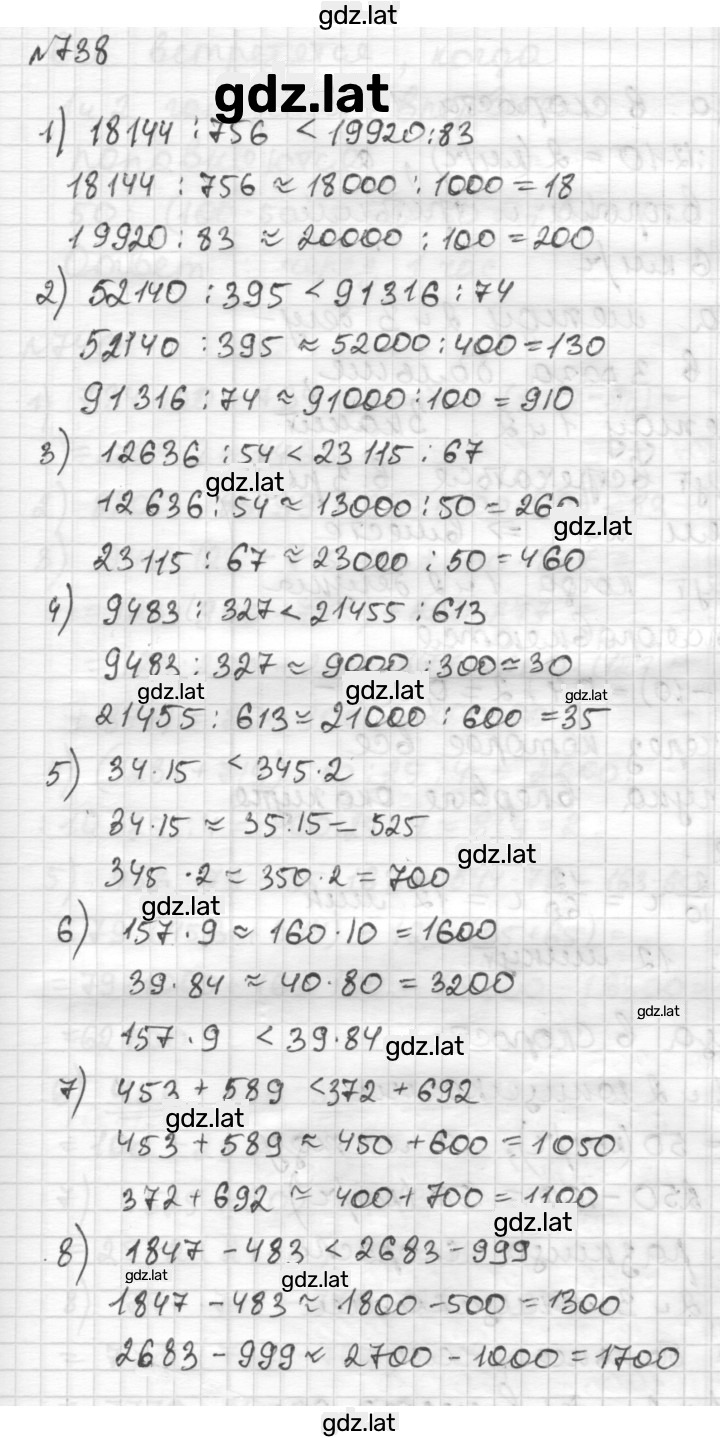 gdz.lat
№738
gdz.lat
1) 18144 : 756 < 19920 : 83
18144 : 756 ≈ 18000 : 1000 = 18
19920 : 83 ≈ 20000 : 100 = 200
2) 52140 : 395 < 91316 : 74
52140 : 395 ≈ 52000 : 400 = 130
91316 : 74 ≈ 91000 : 100 = 910
3) 12636 : 54 < 23115 : 67
gdz.lat
12636 : 54 ≈ 13000 : 50 = 260
gdz.lat
23115 : 67 ≈ 23000 : 50 = 460
4) 9483 : 327 < 21455 : 613
9483 : 327 ≈ 9000 : 300 ≈ 30
gdz.lat gdz.lat gdz.lat
21455 : 613 ≈ 21000 : 600 = 35
5) 34 · 15 < 345 · 2
34 · 15 ≈ 35 · 15 = 525
gdz.lat
345 · 2 ≈ 350 · 2 = 700
gdz.lat
6) 157 · 9 ≈ 160 · 10 = 1600
39 · 84 ≈ 40 · 80 = 3200
gdz.lat
157 · 9 < 39 · 84
gdz.lat
7) 453 + 589 < 372 + 692
gdz.lat
453 + 589 ≈ 450 + 600 = 1050
372 + 692 ≈ 400 + 700 = 1100
gdz.lat
8) 1847 - 483 < 2683 - 999
gdz.lat gdz.lat
1847 - 483 ≈ 1800 - 500 = 1300
2683 - 999 ≈ 2700 - 1000 = 1700
gdz.lat